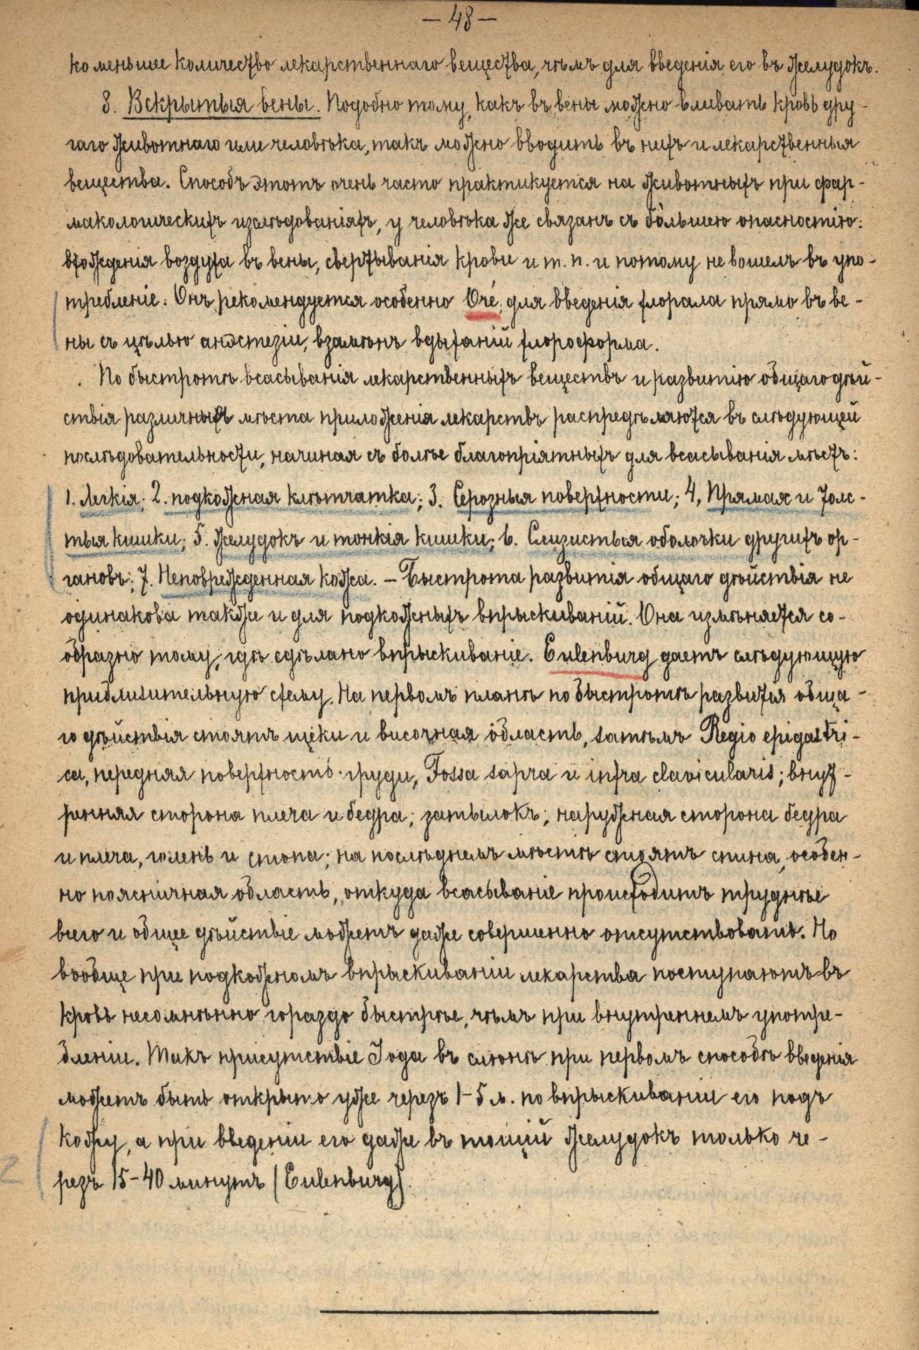 — 48 —
ко меньшее количество лекарственнаго вещества, чѣмъ для введенія его въ желудокъ.
3. Вскрытыя вены. Подобно тому, какъ въ вены можно вливать кровь дру-
гаго животнаго или человѣка, такъ можно вводить въ нихъ и лекарственныя
вещества. Способъ этотъ очень часто практикуется на животныхъ при фар-
макологическихъ изслѣдованіяхъ, у человѣка же связанъ съ бо́льшею опасностію:
вхожденія воздуха въ вены, свертыванія крови и т. п. и потому не вошелъ въ упо-
требленіе. Онъ рекомендуется особенно Oré, для введенія хлорала прямо въ ве-
ны съ цѣлью анэстезіи, взамѣнъ вдыханій хлороформа.
По быстротѣ всасыванія лекарственныхъ веществъ и развитію общаго дѣй-
ствія различныя мѣста приложенія лекарствъ распредѣляются въ слѣдующей
послѣдовательности, начиная съ болѣе благопріятныхъ для всасыванія мѣстъ:
1. Легкія; 2. подкожная клѣтчатка; 3. Серозныя поверхности; 4, Прямая и толс-
тыя кишки; 5. Желудокъ и тонкія кишки; 6. Слизистыя оболочки другихъ ор-
гановъ; 7. Неповрежденная кожа. — Быстрота развитія общаго дѣйствія не
одинакова также и для подкожныхъ впрыскиваній. Она измѣняется со-
образно тому, гдѣ сдѣлано впрыскиваніе. Eulenburg даетъ слѣдующую
приблизительную схему. На первомъ планѣ по быстротѣ развитія обща-
го дѣйствія стоятъ щеки и височная область, затѣмъ Regio epigastri-
ca, передняя поверхность груди, Fossa supra и infra clavicularis; внут-
ренняя сторона плеча и бедра; затылокъ; наружная сторона бедра
и плеча, голень и стопа; на послѣднемъ мѣстѣ стоятъ спина, особен-
но поясничная область, откуда всасываніе происходитъ труднѣе
всего и общее дѣйствіе можетъ даже совершенно отсутствовать. Но
вообще при подкожномъ впрыскиваніи лекарства поступаютъ въ
кровь несомнѣнно гораздо быстрѣе, чѣмъ при внутреннемъ употре-
бленіи. Такъ присутствіе Іода въ слюнѣ при первомъ способѣ введенія
можетъ быть открыто уже черезъ 1-5 м. по впрыскиваніи его подъ
кожу, а при введеніи его даже въ тощій желудокъ только че-
резъ 15-40 минутъ (Eulenburg).